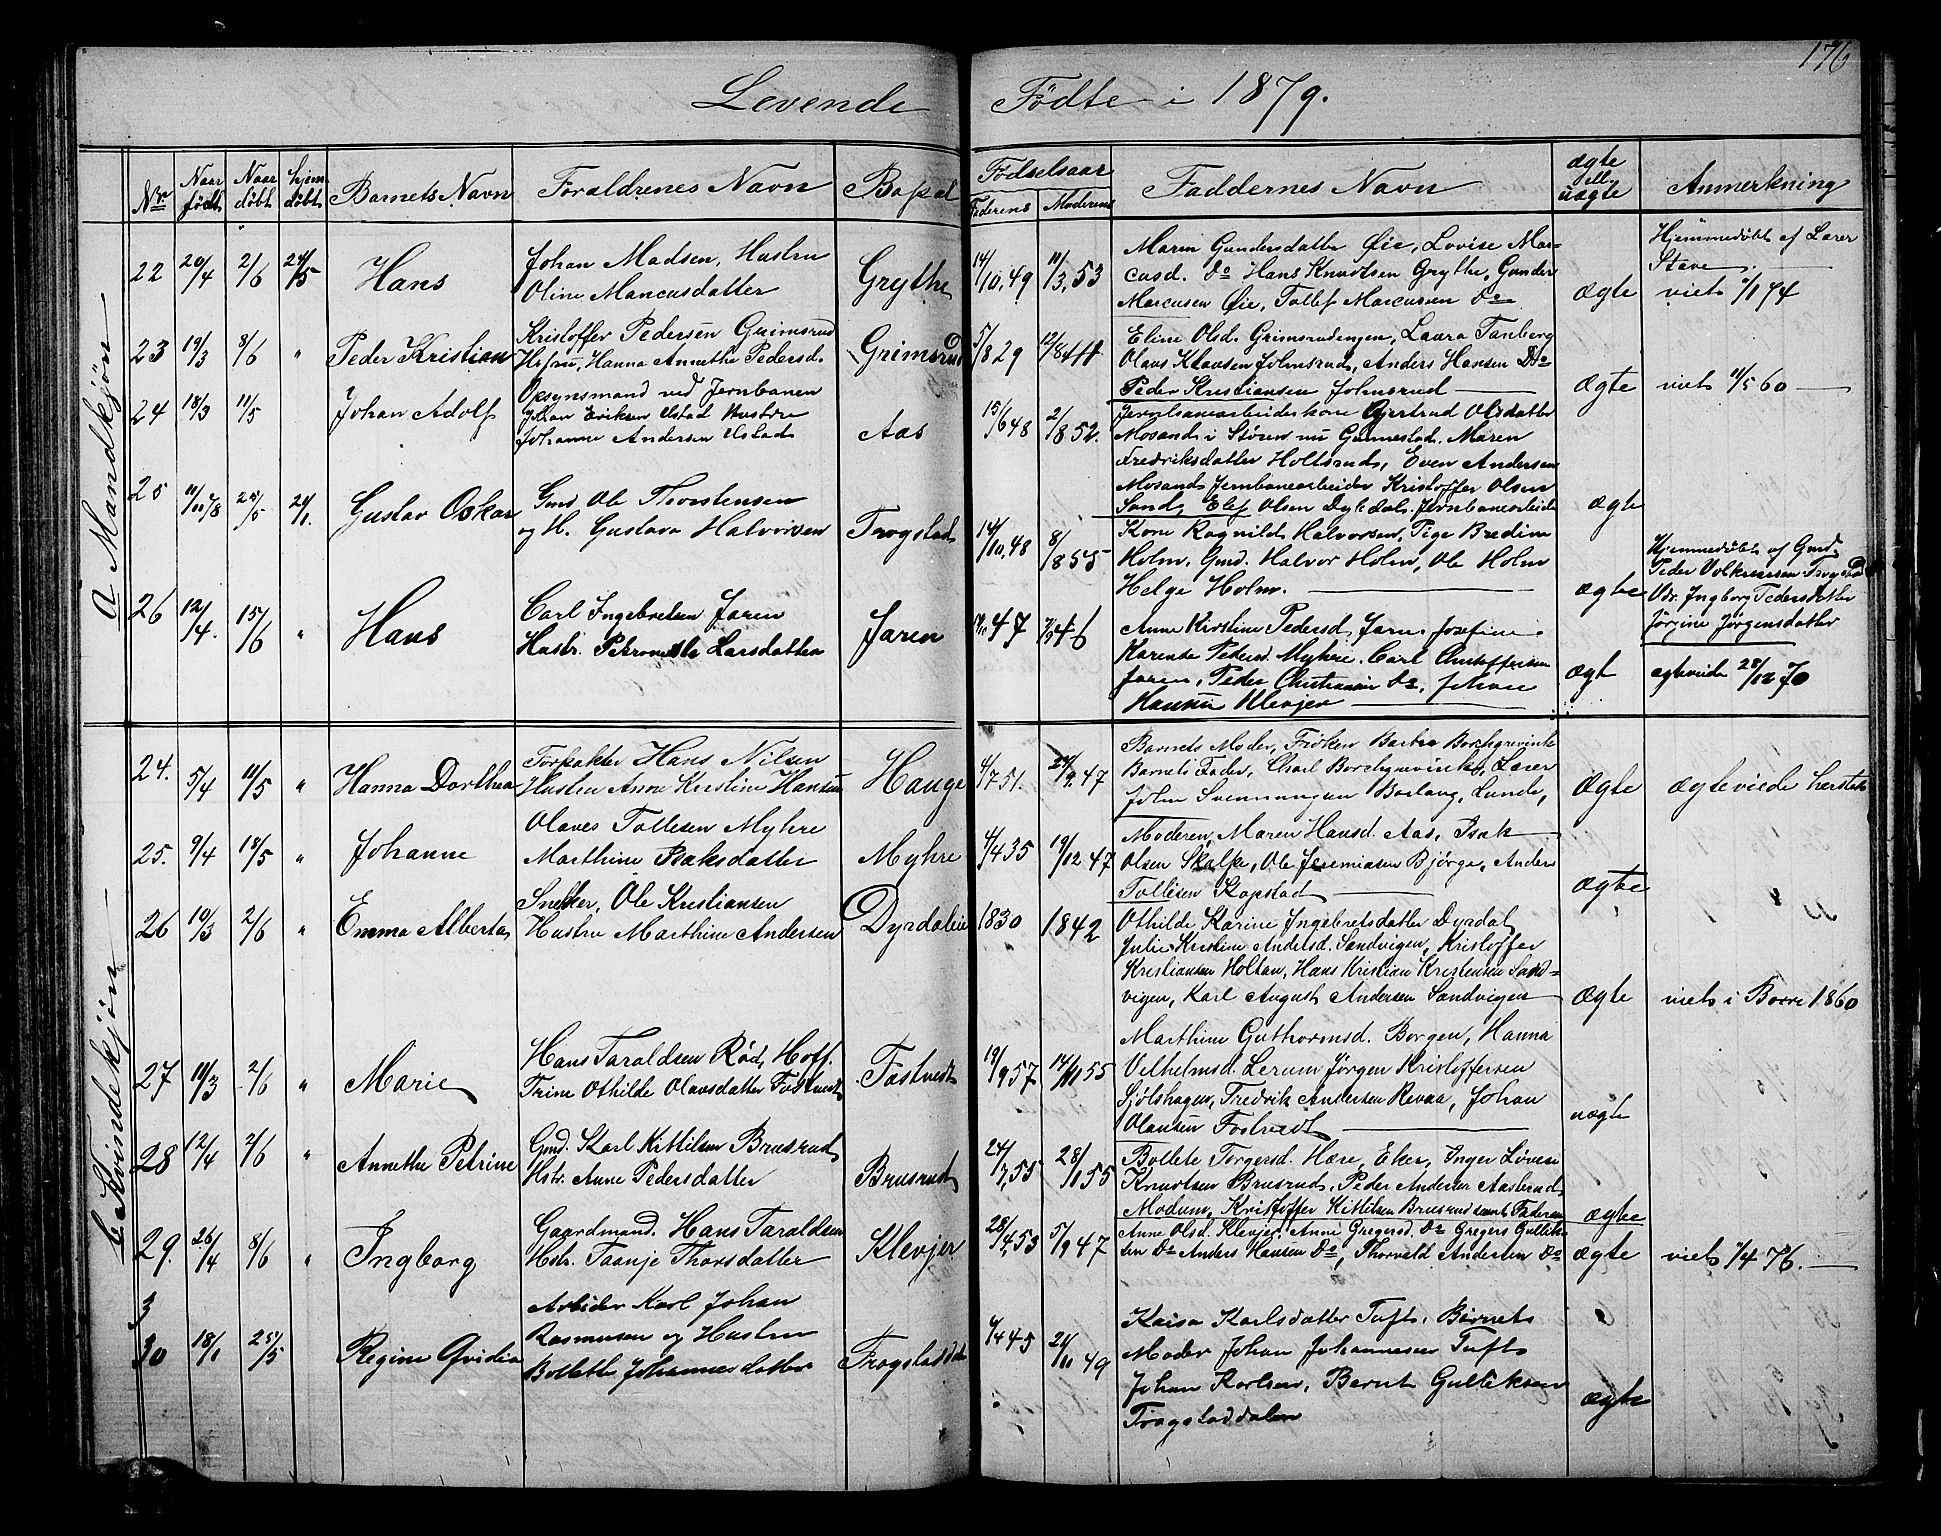 176
Levende Fødte i 1879.
No Naar født Naar døbt hjem døbt Barnets Navn Foraldrenes Navn Bopæl Fødselsaar Faderens Moderens Faddernes Navn ægte ell. uægte Anmerkning
a Mandkjøn
22 20/4 2/6 24/5 Hans
Johan Madsen, Hustru
Oline Marcusdatter
Grythe
14/10,49 11/3,53
Maren Gundersdatter Øie, Lovise Mar-
cusd. Do Hans Knudtsen Grythe, Gunder
Marcusen Øie, Tollef Marcusen Do
ægte
Hjemmedøbt af Lærer
Stave
viet 1/1 74
23 19/3 8/6 " Peder Kristian
Kristoffer Pedersen Grimsrud
Hustru, Hanna Annethe Pedersd.
Grimsrud
5/8 29 12/8 41
Eline Olsd. Grimsrudengen, Laura Tanberg
Olaus Klausen Johnsrud, Anders Hansen Do
Peder Kristiansen Johnsrud
ægte
viet 11/5 60
24 18/3 11/5 Johan Adolf
Opsynsmand ved Jernbanen
Johan Eriksen Ustad Hustru
Johanne Andersen Ustad
Aas
15/6 48 2/8 52.
Jernbanearbeiderkone Gjertrud Olsdatter
Mosand i Støren nu Gunnestad. Maren
Fredriksdatter Holtsrud, Even Andersen
Mosand Jernbanearbeider Kristoffer Olsen
Sand, Elef Olsen Dyledal, Jernbanearbeide
ægte
25 11/11 78 25/5 29/1. Gustav Oskar
Gmd Ole Thorstensen
og H. Gustava Halvorsen
Trogstad
14/10,48 8/8 55
Kone Ragnild Halvorsen, Pige Bredine
Holm, Gmd. Halvor Holm, Ole Holm
Helge Holm.
ægte
Hjemmedøbt af Gmd.
Peder Volkersen Trogstad
Vdr. Ingborg Pedersdatter
Jørgine Jørgensdatter
26 12/4. 15/6 " Hans
Carl Ingebretsen Jaren
Hustr. Petronelle Larsdatter
Jaren
47 46
Anne Kirstine Pedersd. Jaren, Josefine
Karense Pedersd. Myhre. Carl Christoffersen
Jaren, Peder Christiansen Do, Johan
Hansen Klevjer
ægt
egteviede 28/12 70
b Kvindekjøn
24. 5/4 11/5 " Hanna Dorthea
Forpakter Hans Nilsen
Hustru Anne Kirstine Hansen
Hauge
4/7 51. 24/9,47
Barnets Moder, Frøken Barbra Borchgrevink
Barnets Fader, Charl Borchgrevink, Lærer
John Svennungsen Borlaug, Lunde,
ægte
ægteviede herstets
25. 9/4 18/5 " Johanne
Olaves Tollesen Myhre
Marthine Isaksdatter
Myhre
4/4 35 19/12 47
Moderen, Maren Hansd. Aas, Isak
Olsen Skalpe, Ole Jeremiasen Bjørge, Anders
Tollesen Skopstad
ægte
26 19/3 2/6 " Emma Alberta
Snekker, Ole Kristiansen
Hustru Marthine Andersen
Dyrdaleie
1830 1842
Othilde Karine Ingebretsdatter Dyrdal
Julie Kristine Andersd. Sandvigen, Kristoffer
Kristiansen Holtan, Hans Kristian Kristensen Sand-
vigen, Karl August Andersen Sandvigen
ægte
viet i Borre 1860
27 11/3 2/6 " Marie
Hans Taraldsen Rød, Hoff.
Trine Othilde Olavsdatter Fostvedt
Fostvedt
19/9 57 14/11 55
Marthine Guthormsd. Borgen, Hanna
Vilhelmsd. Lerum Jørgen Kristoffersen
Sjølshagen, Fredrik Andersen Revaa, Johan
Olausen Fostvedt
uægte
28 12/4 2/6 " Annethe Petrine
Gmd. Karl Kittilsen Brusrud
Hstr. Anne Pedersdatter
Brusrud
24/7,55 28/1 55
Bollete Torgersd. Hære, Eker, Inger Lovise
Knudtsen Brusrud, Peder Andersen Aaslerud
Modum, Kristoffer Kittilsen Brusrud samt Faderen
ægte
29. 26/4 8/6 " Ingborg
Gaardmand. Hans Taraldsen
Hstr. Taanje Thorsdatter
Klevjer
28/4,53 5/9 47
Anne Olsd. Klevjer. Anne Gregersd. Do Gregers Gullik-
sen Do Anders Hansen Do, Thorvald Andersen Do
ægte
viet 7/4 76.
3
30 18/1 25/5 Regine Ovidia
Arbeider Karl Johan
Rasmusen og Hustru
Bollette Johannesdatter
Trogstaddal
4/4 45 21/11 49
Kaisa Karlsdatter Tuft, Barnets
Moder Johan Johannesen Tuft
Johan Karlsen, Bernt Gulliksen
Trogstaddalen
ægte